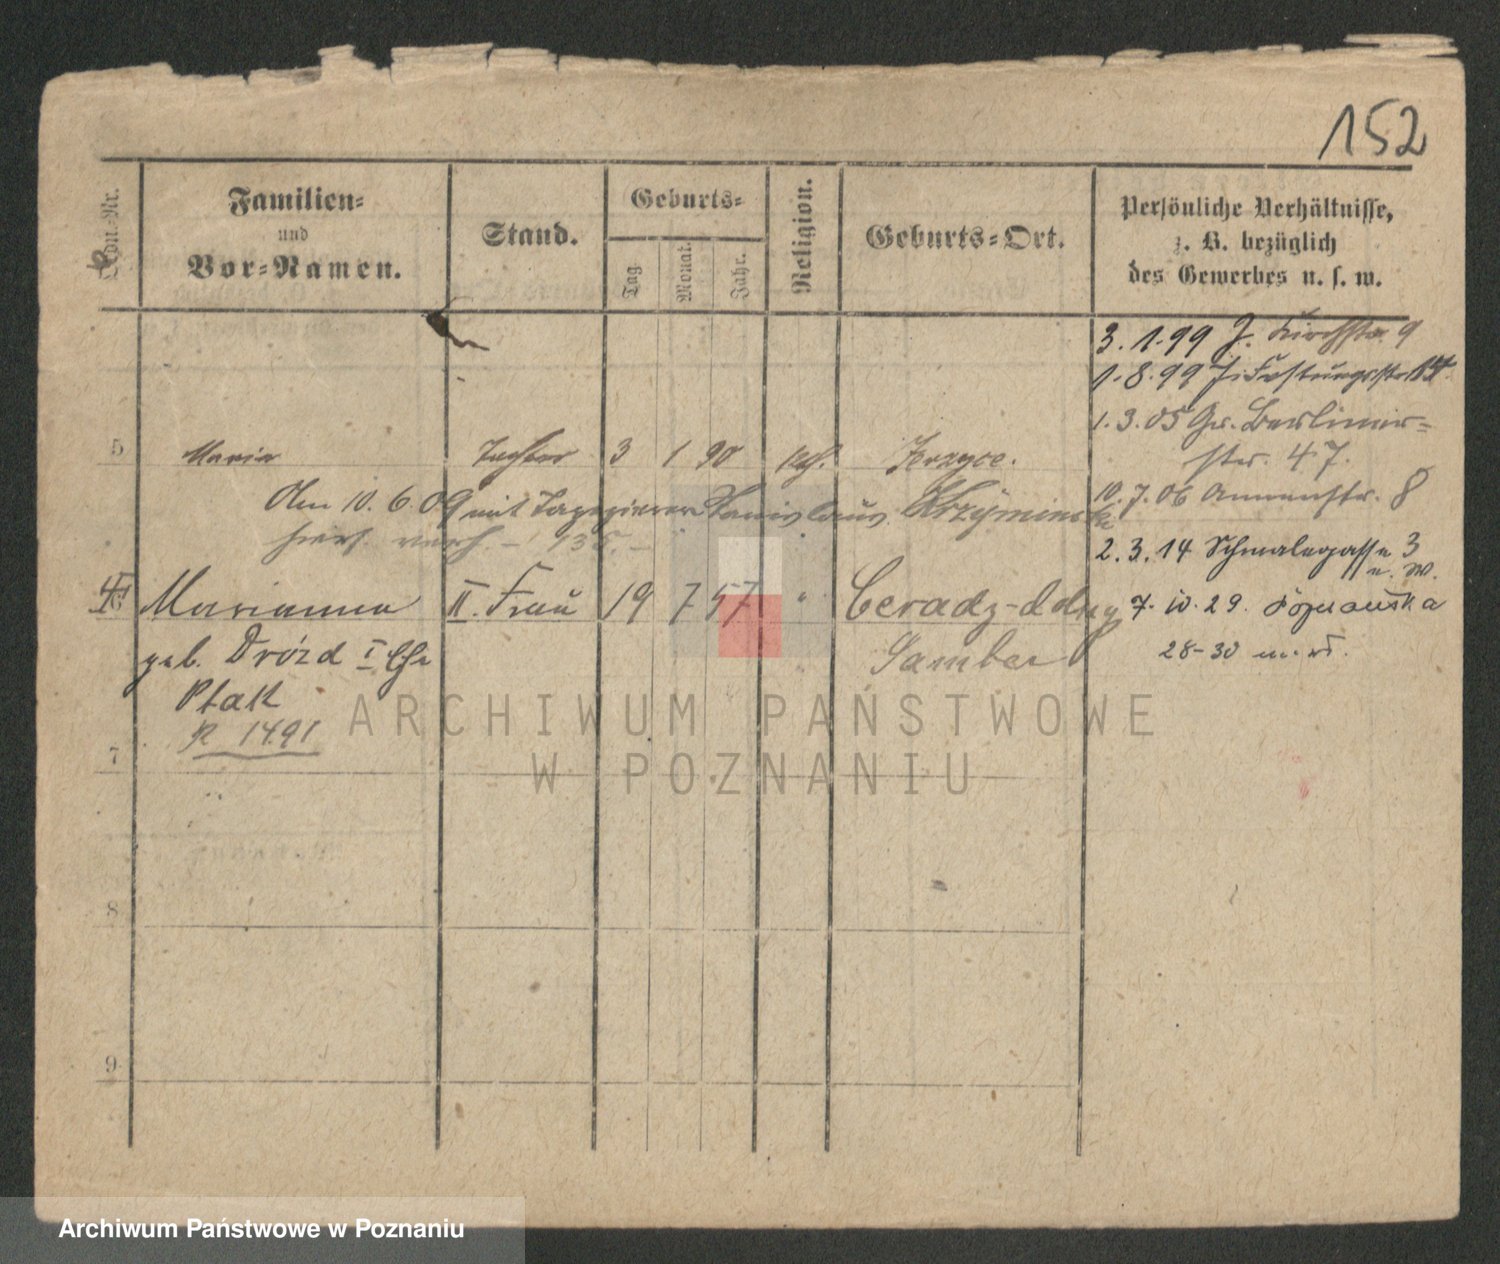 152
Kon.-Nr.
Familien-
und
Vor-Namen.
Stand.
Geburts-
Tag
Monat.
Jahr.
Religion.
Geburts-Ort.
Persönliche Verhältnisse,
z. B. bezüglich
des Gewerbes u. s. w.
3. 1. 99 J. Kirchstr. 9
1. 8. 99 J. Festungsstr.
1. 3. 05 Gr. Berliner-
str. 47.
5 Maria Tochter 3 1 90 kath. Jerzyce.
10. 7. 06 Annenstr. 8
Am 10. 6. 09 mit Tapezierer Stanislaus
hiers. verh.
2. 3. 14 Schmalegasse 3
n. W.
6 Marianna II. Frau 19 7 57 " Ceradz-dolny
7. 10. 29. Poznańska
geb. Dróżd I Ehe
Samter
28-30
Ptak
R 1491
7
8
9
ARCHIWUM PAŃSTWOWE
W POZNANIU
Archiwum Państwowe w Poznaniu